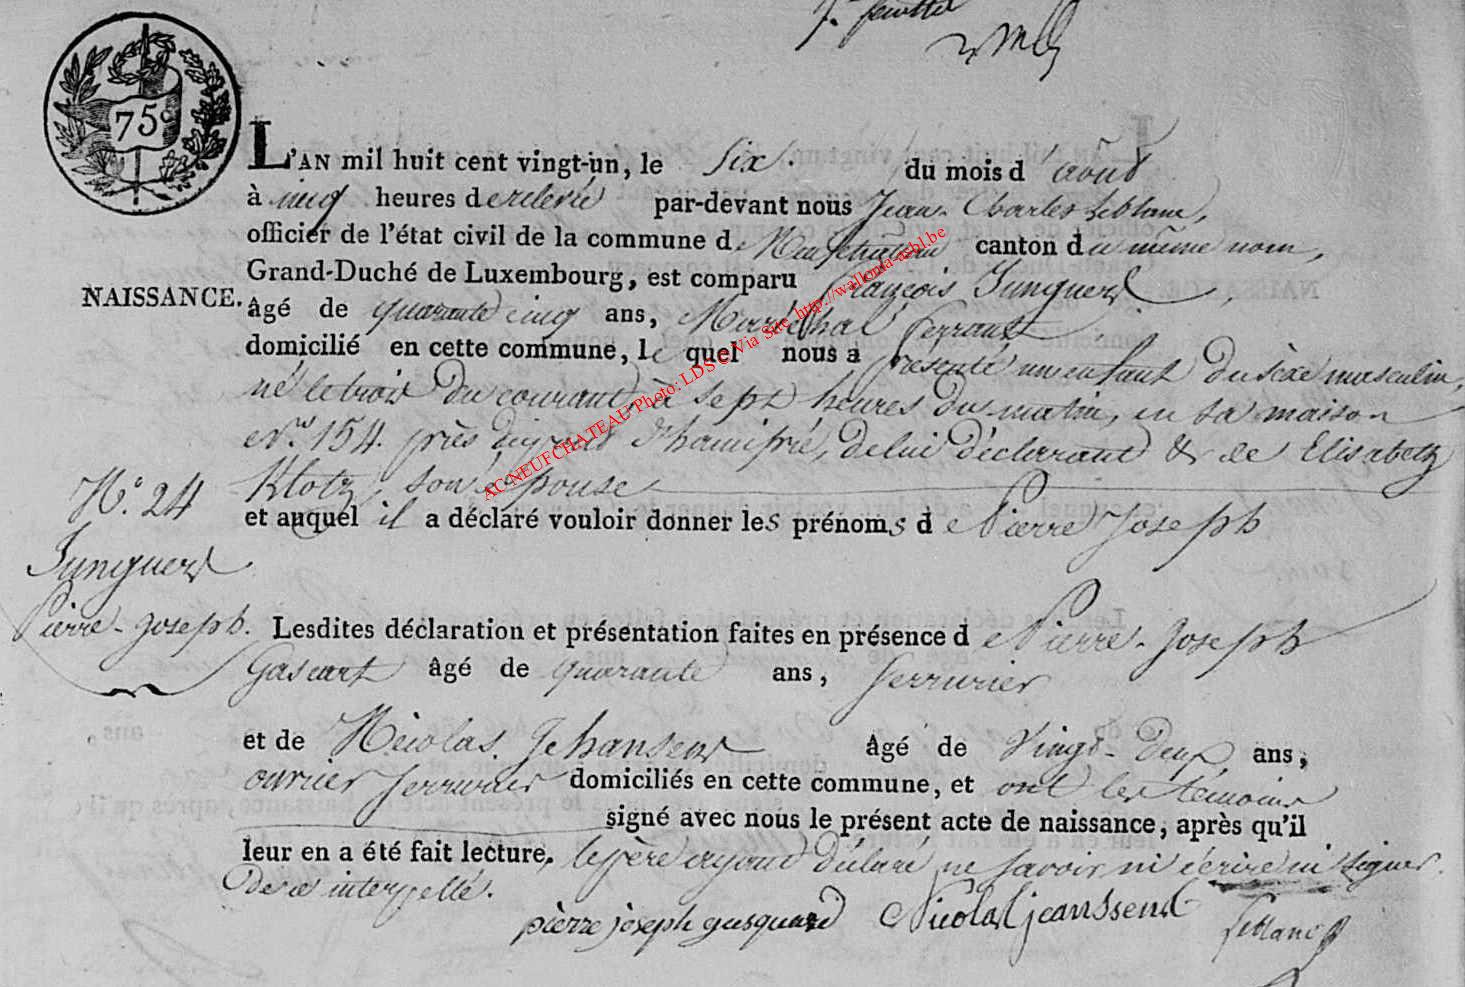 75c
L'AN mil huit cent vingt-un, le Six du mois d'août
à cinq heures de relevée par-devant nous Jean-Charles Leblanc,
officier de l'état civil de la commune de Neufchateau canton du même nom,
Grand-Duché de Luxembourg, est comparu François Junguers,
NAISSANCE.
âgé de quarante cinq ans, Maréchal ferrant
domicilié en cette commune, le quel nous a présenté un enfant du sèxe masculin,
né le trois du courant, à sept heures du matin, en sa maison
N° 154. près d'hamipré, de lui déclarant & de Elisabeth
Klotz, son épouse
N° 24
et auquel il a déclaré vouloir donner les prénoms de Pierre Joseph
Junguers
Pierre-Joseph.
Lesdites déclaration et présentation faites en présence de Pierre-Joseph
Gascart âgé de quarante ans, serrurier
et de Nicolas Jehansens âgé de vingt-deux ans,
ouvrier serrurier domiciliés en cette commune, et ont les témoins
signé avec nous le présent acte de naissance, après qu'il
leur en a été fait lecture, le père ayant déclaré ne savoir ni écrire ni signer
de ce interpellé.
pièrre jòseph gusquard Nicolas jeanssens Leblanc
AC NEUFCHATEAU Photo: LDS © Via Site http://wallonia-asbl.be